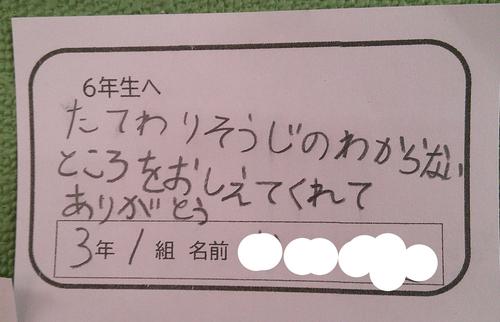 6年生へ
たてわりそうじのわからない
ところをおしえてくれて
ありがとう
3年 1組 名前